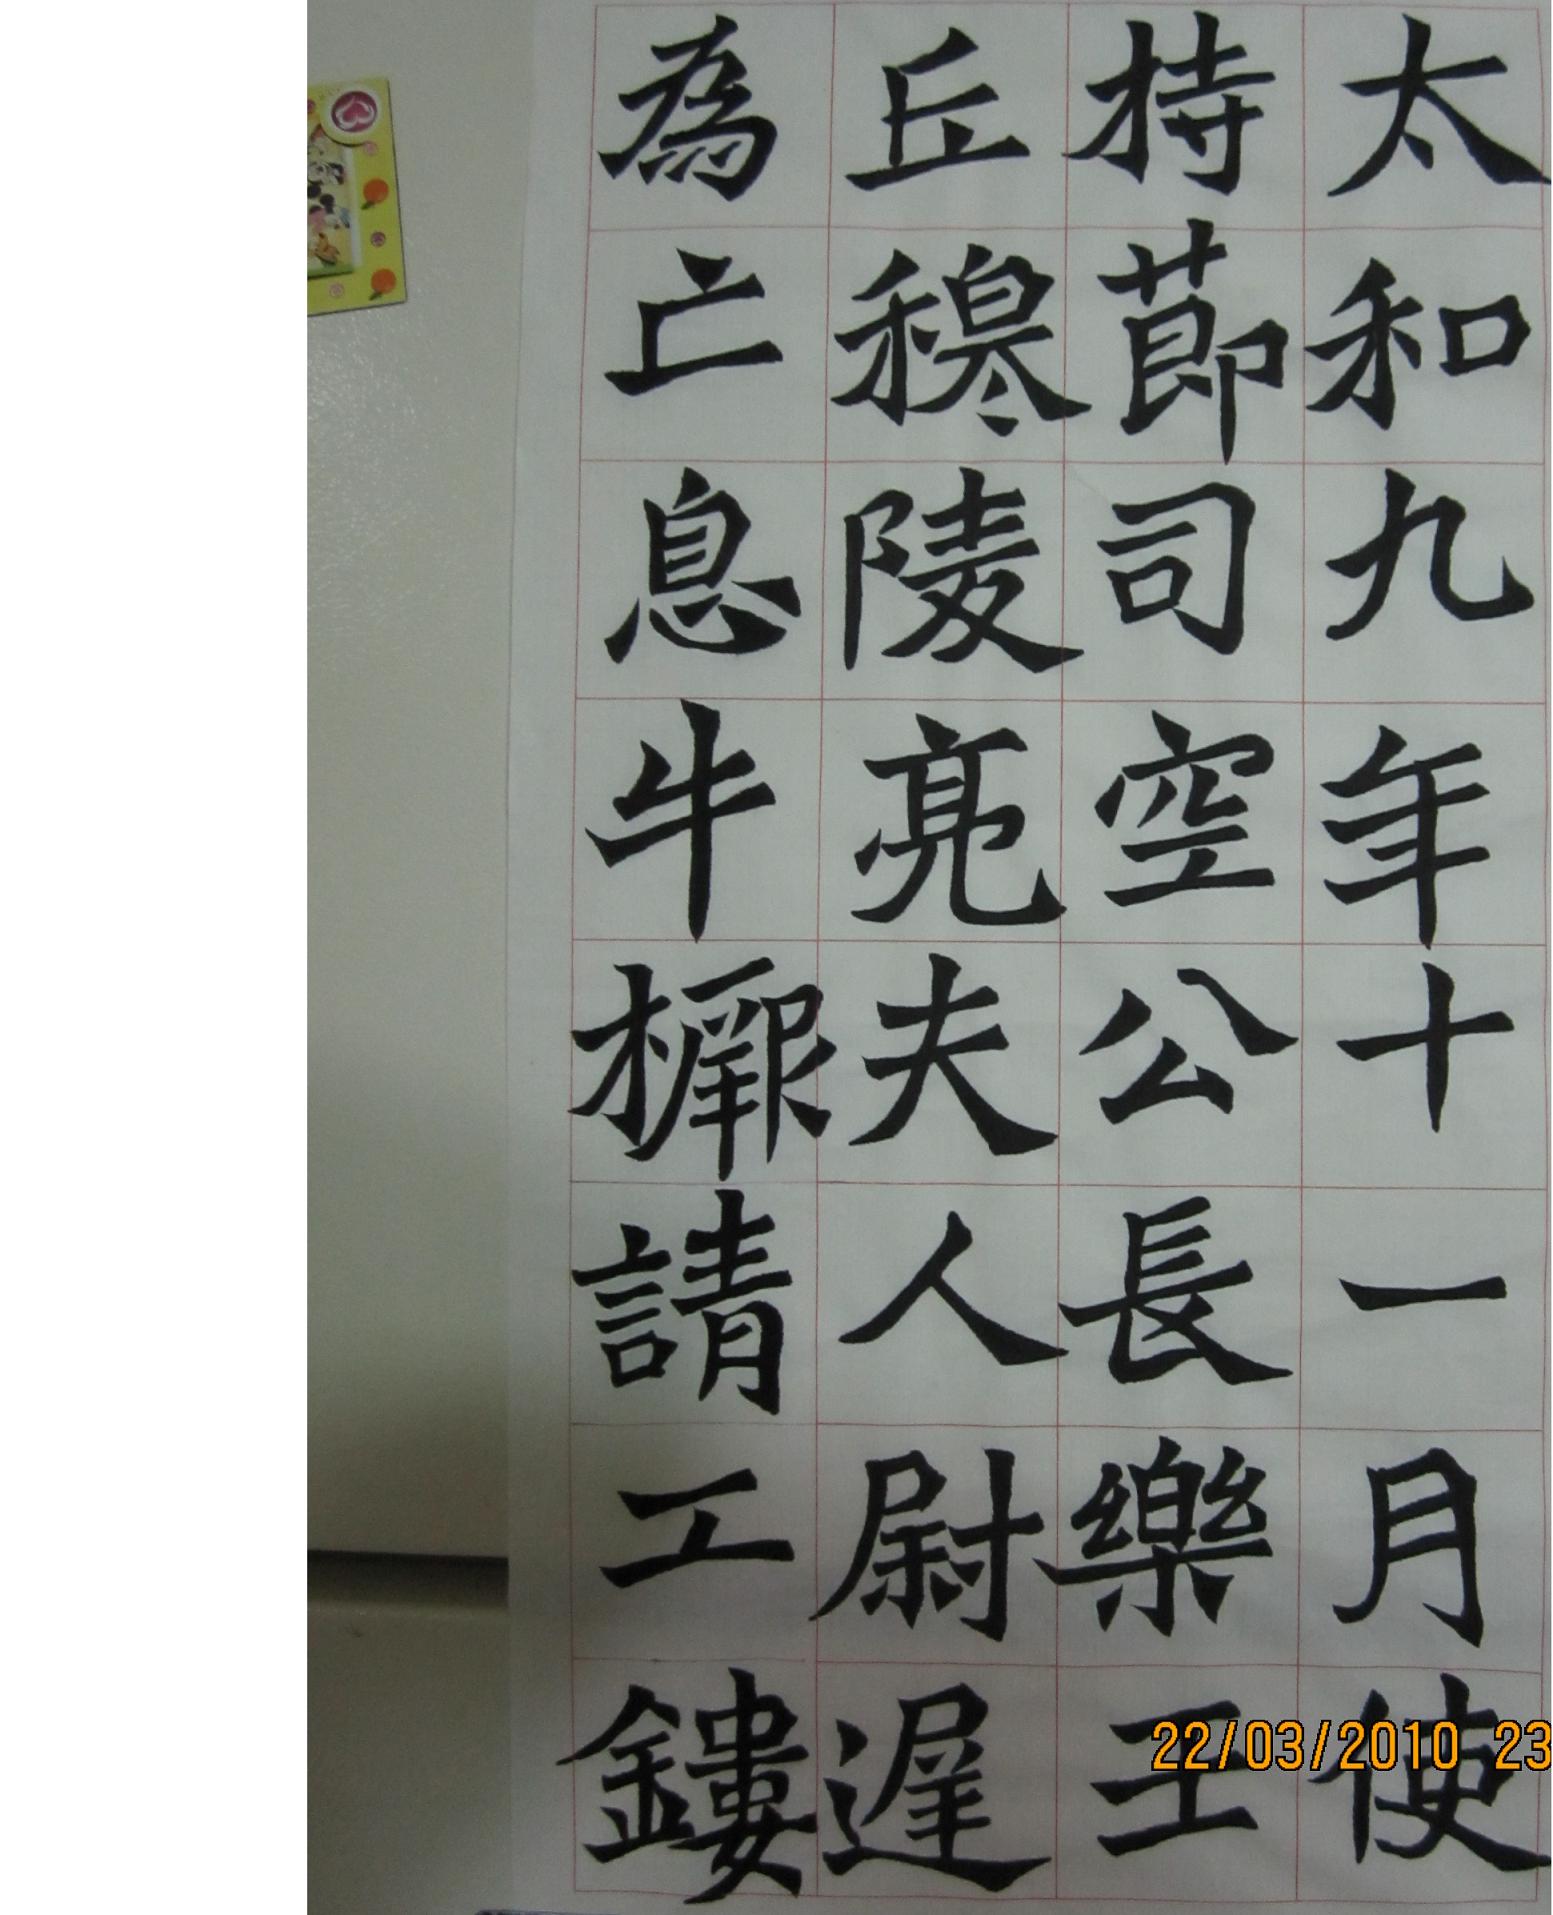 太和九年十一月使
持節司空公長樂王
丘穆陵亮夫人尉遲
為亡息牛橛請工鏤
22/03/2010 23